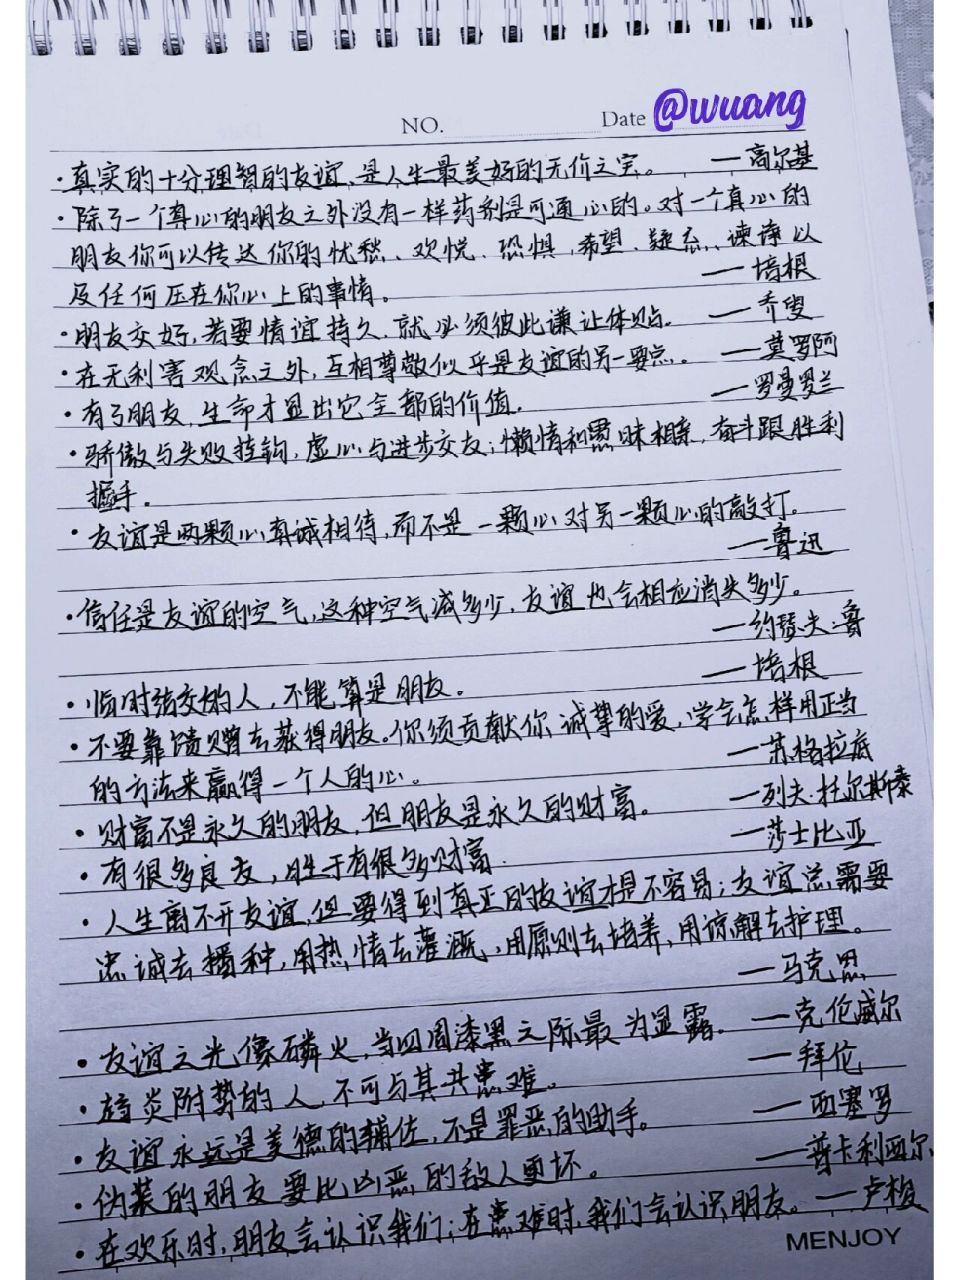 NO. Date @wuang
·真实的十分理智的友谊,是人生最美好的无价之宝。 —高尔基
·除了一个真心的朋友之外没有一样药剂是可通心的。对一个真心的
朋友你可以传达你的忧愁、欢悦、恐惧,希望、疑忌、谏诤以
及任何压在你心上的事情。 —培根
·朋友交好,若要情谊持久,就必须彼此谦让体贴. —乔叟
·在无利害观念之外,互相尊敬似乎是友谊的另一要点. —莫罗阿
·有了朋友,生命才显出它全部的价值. —罗曼罗兰
·骄傲与失败挂钩,虚心与进步交友;懒惰和愚昧相亲,奋斗跟胜利
握手.
·友谊是两颗心真诚相待,而不是一颗心对另一颗心的敲打.
—鲁迅
·信任是友谊的空气,这种空气减多少,友谊也会相应消失多少。
—约瑟夫·鲁
·临时结交的人,不能算是朋友。 —培根
·不要靠馈赠去获得朋友。你须贡献你诚挚的爱,学会怎样用正当
的方法来赢得一个人的心。 —苏格拉底
·财富不是永久的朋友,但朋友是永久的财富。 —列夫·托尔斯泰
·有很多良友,胜于有很多财富. —莎士比亚
·人生离不开友谊,但要得到真正的友谊才是不容易;友谊总需要
忠诚去播种,用热情去灌溉,用原则去培养,用谅解去护理。
—马克思
·友谊之光像磷火,当四周漆黑之际最为显露. —克伦威尔
·趋炎附势的人,不可与其共患难。 —拜伦
·友谊永远是美德的辅佐,不是罪恶的助手。 —西塞罗
·伪装的朋友要比凶恶的敌人更坏。 —普卡利西尔
·在欢乐时,朋友会认识我们;在患难时,我们会认识朋友。 —卢梭
MENJOY